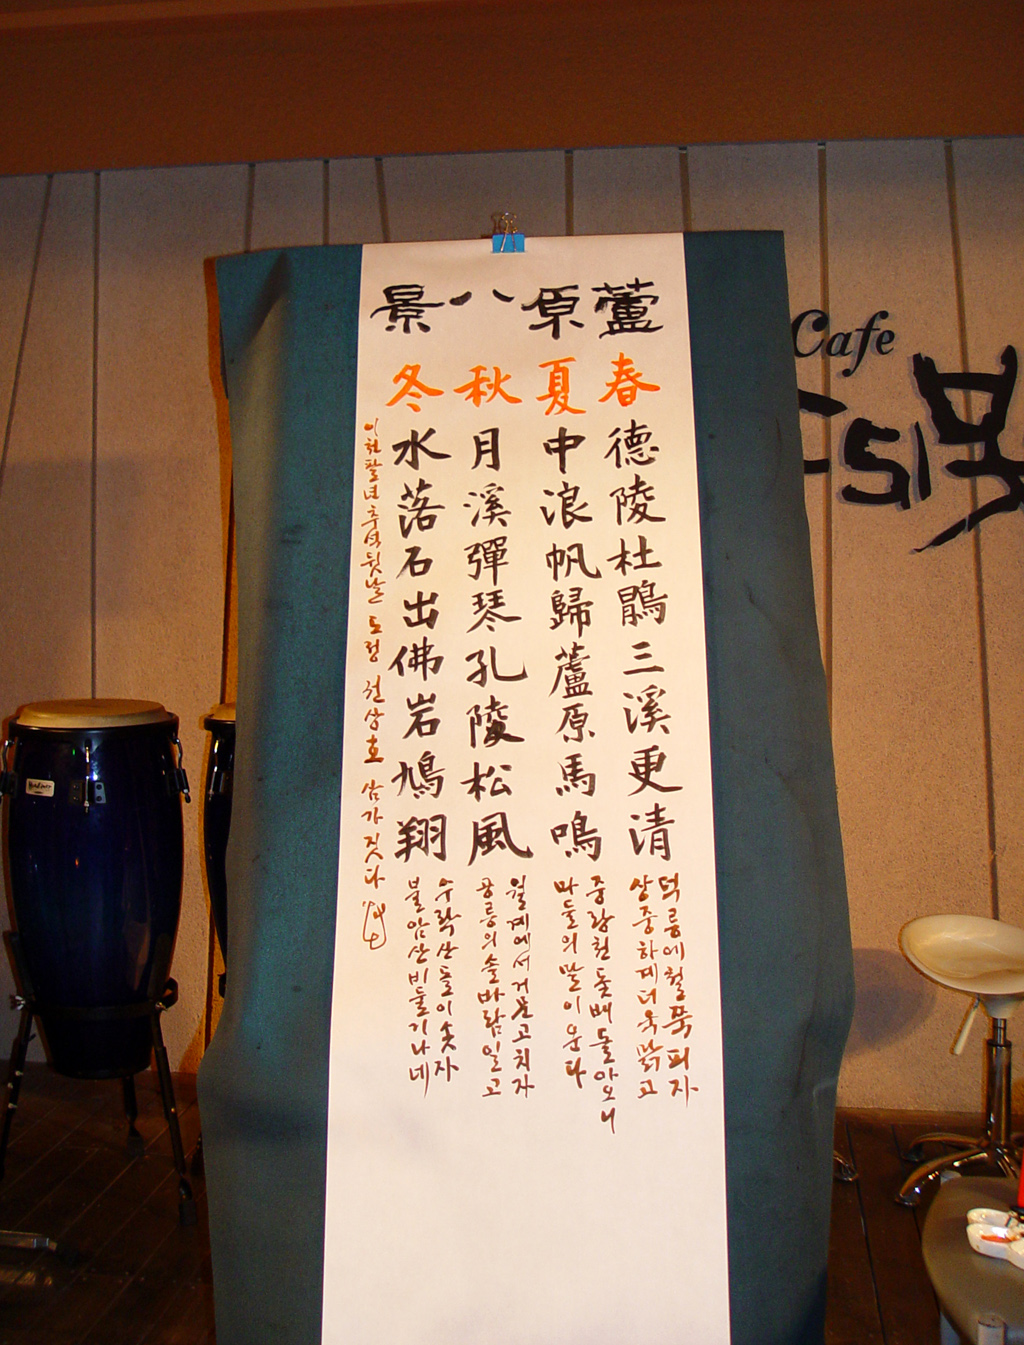 蘆原八景
春
德陵杜鵑三溪更清
덕릉에철쭉피자
상중하계더욱맑고
夏
中浪帆歸蘆原馬鳴
중랑천돛배돌아오니
마들의말이운다
秋
月溪彈琴孔陵松風
월계에서거문고치자
공릉의솔바람일고
冬
水落石出佛岩鳩翔
수락산돌이솟자
불암산비둘기나네
이천팔년추석뒷날 도정 권상호 삼가짓다
Cafe